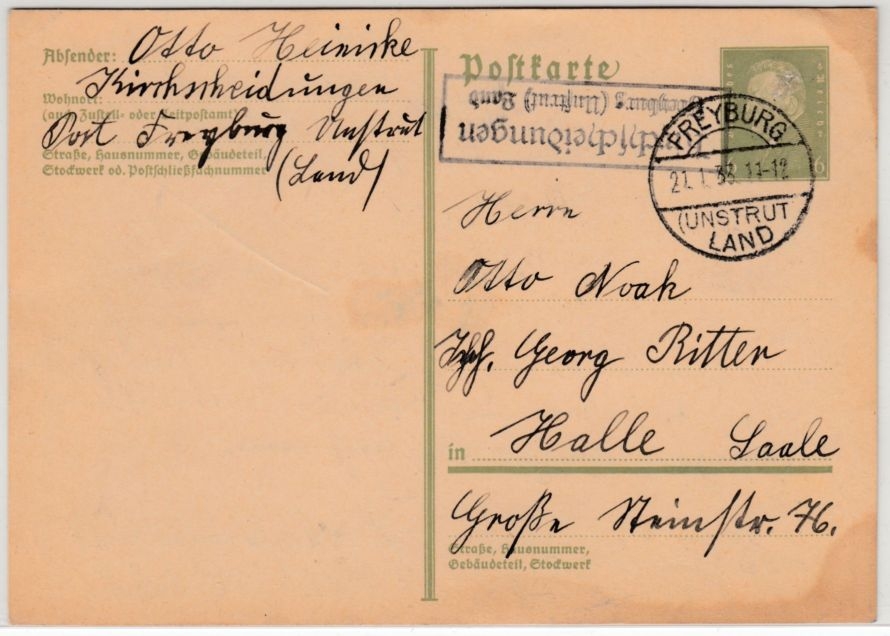 Absender: Otto Heinicke
Kirchscheidungen
Wohnort:
(auch Zustell- oder Leitpostamt)
Post Freyburg Unstrut
Straße, Hausnummer, Gebäudeteil,
Stockwerk od. Postschließfachnummer
(Land)
Postkarte
Kirchscheidungen
Freyburg (Unstrut) Land
FREYBURG
21.1.33 11-12
(UNSTRUT
LAND
6
Herrn
Otto Noak
Georg Ritter
in Halle Saale
Große Steinstr. 76.
Straße, Hausnummer,
Gebäudeteil, Stockwerk